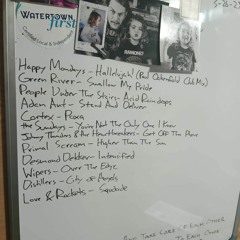 5-26-23
WATERTOWN
first
RAMONES
Happy Mondays - Hallelujah! (Paul Oakenfold Club Mix)
Green River - Swallow My Pride
People Under The Stairs - Acid Raindrops
Adam Ant - Stand And Deliver
Cortex - Roxa
the Sundays - You're Not The Only One I Know
Johnny Thunders & the Heartbreakers - Get Off The Phone
Primal Scream - Higher Than The Sun
Desmond Dekker - Intensified
Wipers - Over The Edge
Distillers - City of Angels
Love & Rockets -
Take Care of Each Other